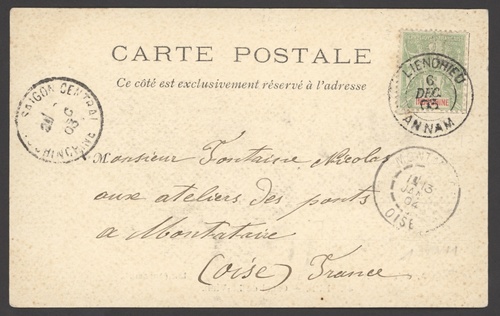 CARTE POSTALE
Ce côté est exclusivement réservé à l'adresse
LIENCHIEU
6
DEC
03
ANNAM
SAIGON CENTRAL
COCHINCHINE
03
Monsieur Fontaine Nicolas
aux ateliers des ponts
a Montataire
(Oise) France
13
OISE